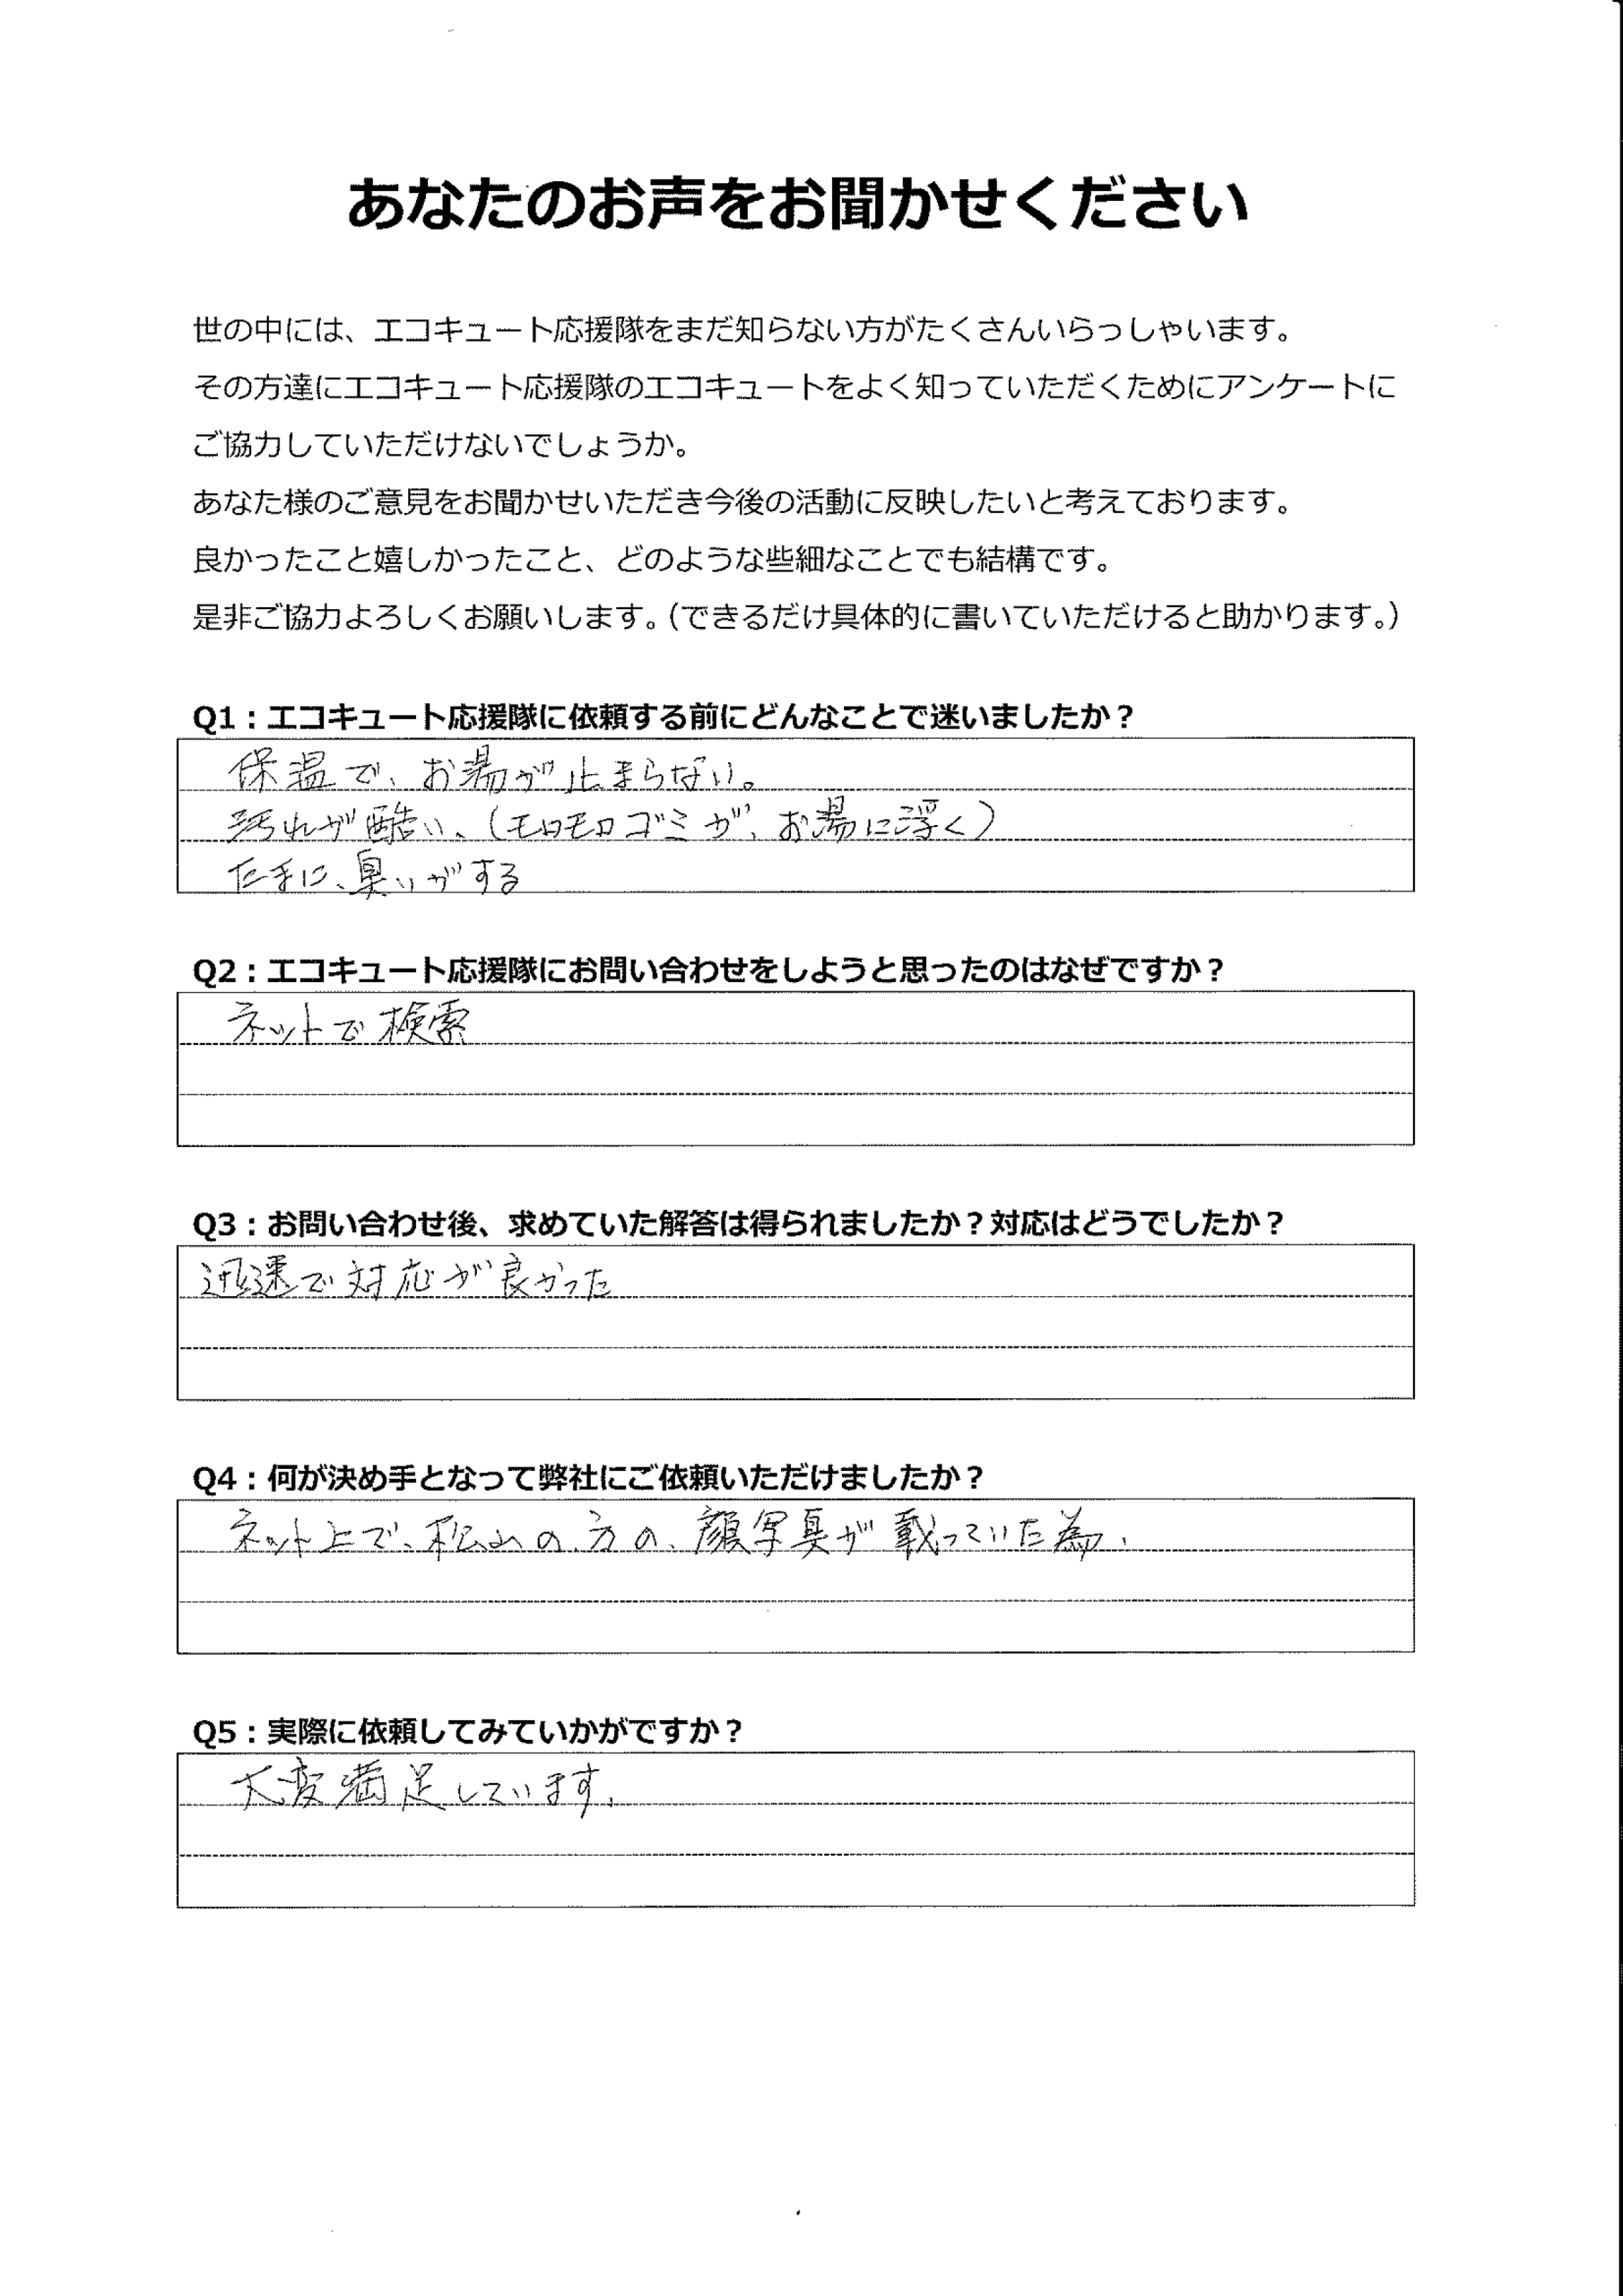 あなたのお声をお聞かせください
世の中には、エコキュート応援隊をまだ知らない方がたくさんいらっしゃいます。
その方達にエコキュート応援隊のエコキュートをよく知っていただくためにアンケートに
ご協力していただけないでしょうか。
あなた様のご意見をお聞かせいただき今後の活動に反映したいと考えております。
良かったこと嬉しかったこと、どのような些細なことでも結構です。
是非ご協力よろしくお願いします。（できるだけ具体的に書いていただけると助かります。）
Q1：エコキュート応援隊に依頼する前にどんなことで迷いましたか？
保温で、お湯が止まらない。
汚れが酷い、（モロモロゴミが、お湯に浮く）
たまに、臭いがする
Q2：エコキュート応援隊にお問い合わせをしようと思ったのはなぜですか？
ネットで検索
Q3：お問い合わせ後、求めていた解答は得られましたか？対応はどうでしたか？
迅速で対応が良かった
Q4：何が決め手となって弊社にご依頼いただけましたか？
ネット上で、松山の方の、顔写真が載っていた為、
Q5：実際に依頼してみていかがですか？
大変満足しています。